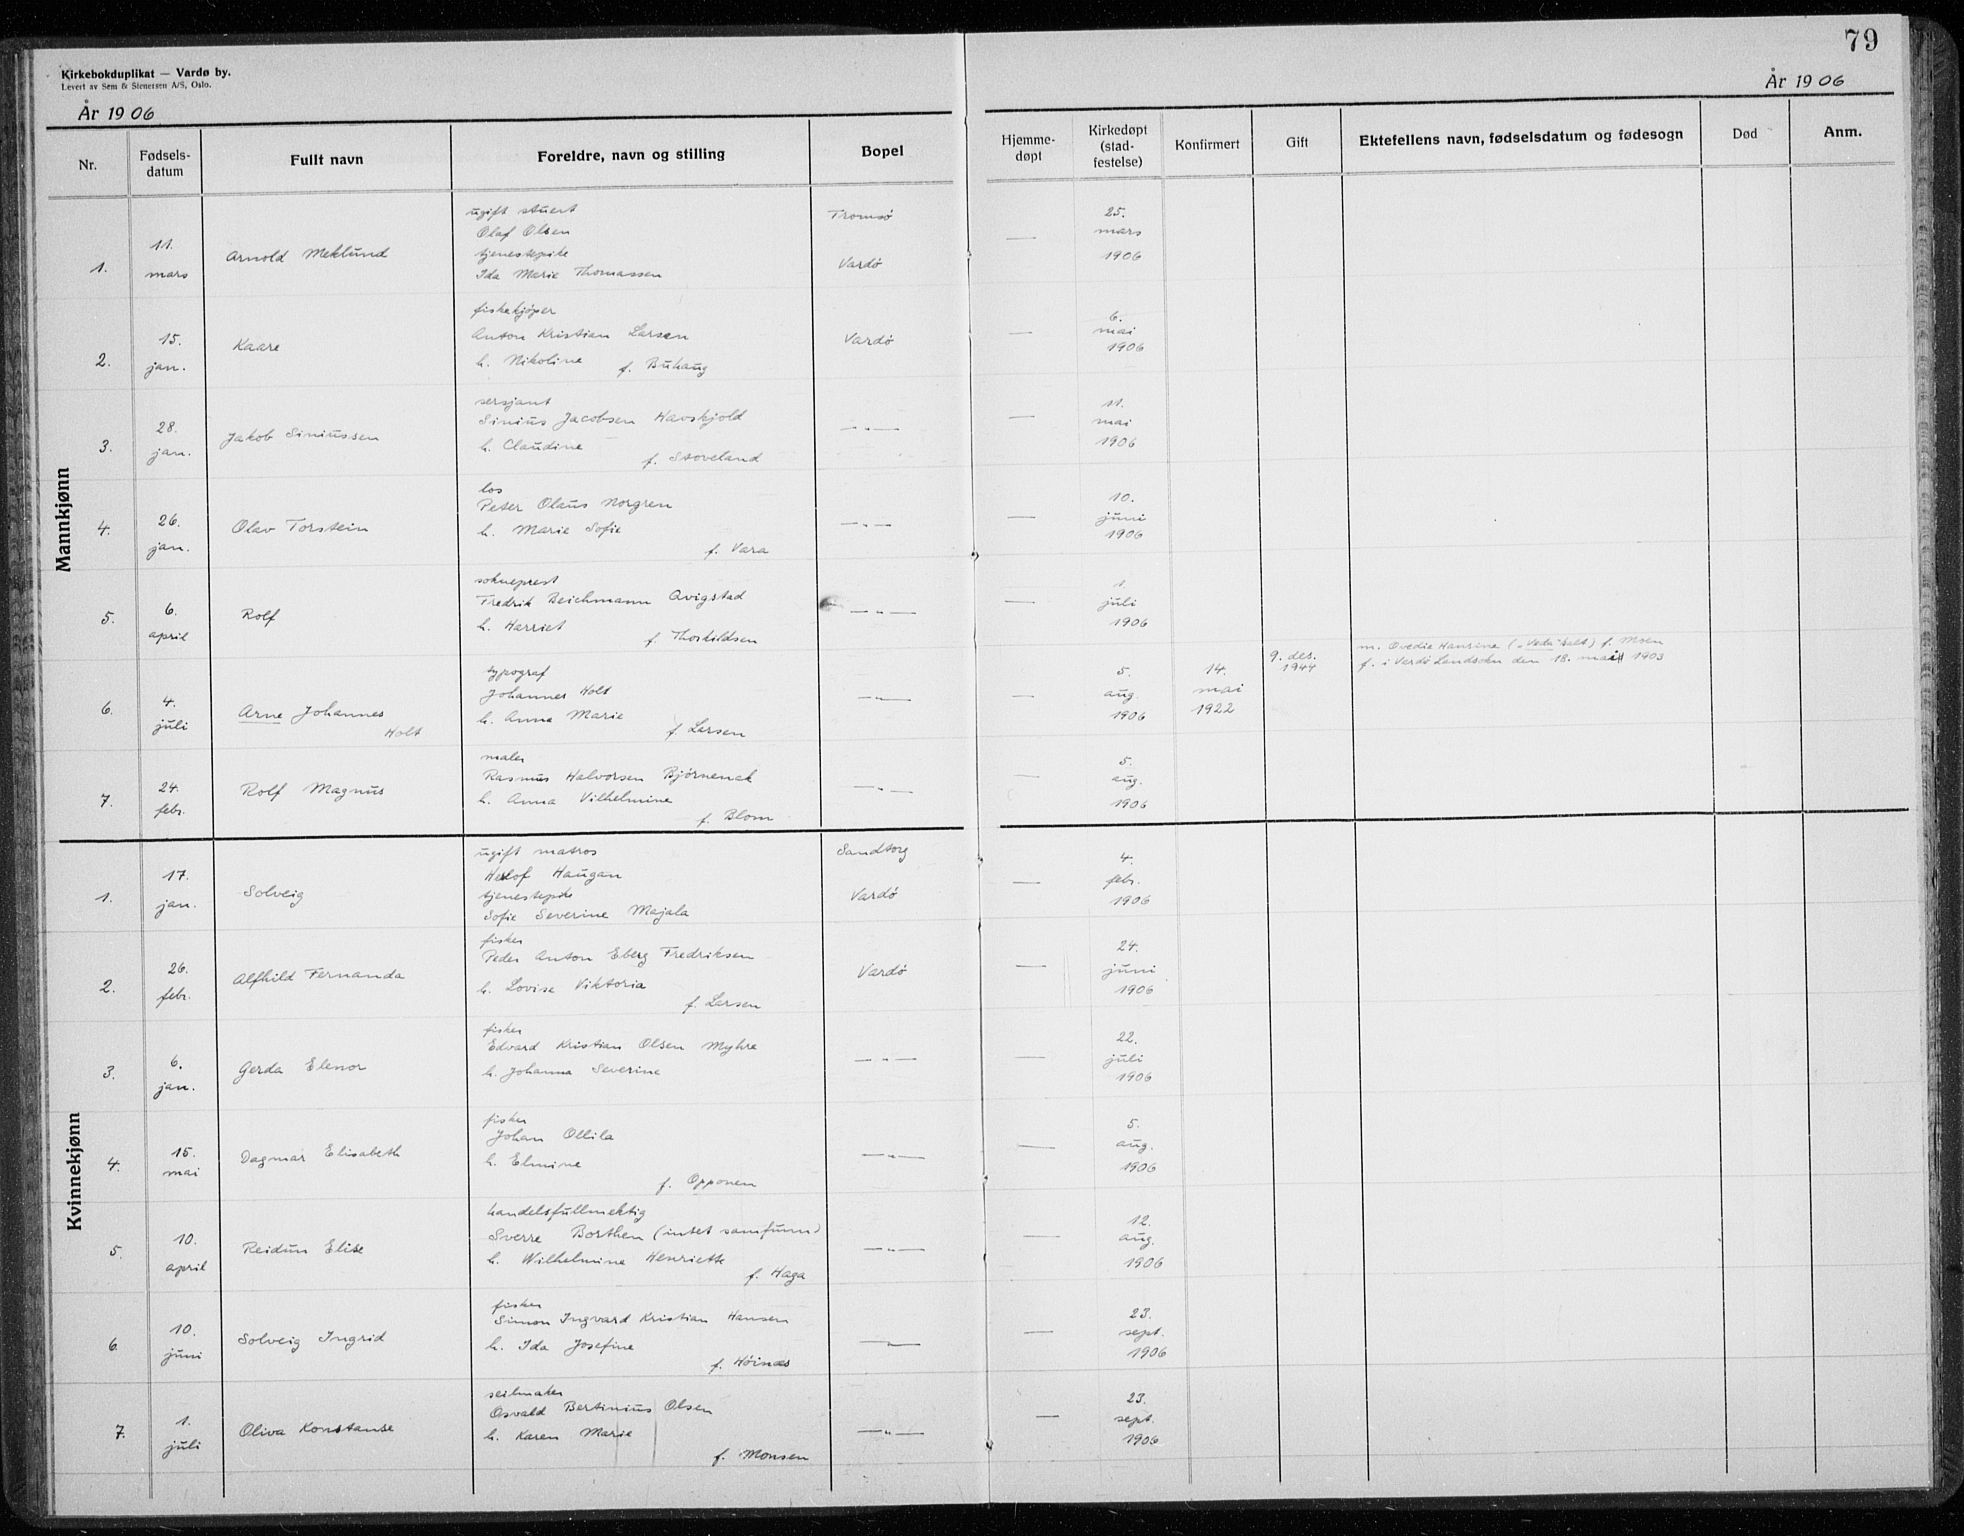 79
Kirkebokduplikat — Vardø by.
Levert av Sem & Stenersen A/S, Oslo.
År 1906
År 1906
Nr.
Fødsels-
datum
Fullt navn
Foreldre, navn og stilling
Bopel
Hjemme-
døpt
Kirkedøpt
(stad-
festelse)
Konfirmert
Gift
Ektefellens navn, fødselsdatum og fødesogn
Død
Anm.
Mannkjønn
1.
11.
mars
Arnold Meklund
ugift stuert
Olaf Olsen
tjenestepike
Ida Marie Thomassen
Tromsø
Vardø
—
25.
mars
1906
2.
15.
jan.
Kaare
fiskekjøper
Anton Kristian Larsen
h. Nikoline f. Buhaug
Vardø
—
6.
mai
1906
3.
28.
jan.
Jakob Siniussen
sersjant
Sinius Jacobsen Havskjold
h. Claudine
f. Stoveland
— „ —
—
11.
mai
1906
4.
26.
jan.
Olav Torstein
los
Peter Olaus Norgren
h. Marie Sofie
f. Vara
— „ —
—
10.
juni
1906
5.
6.
april
Rolf
sokneprest
Fredrik Beichmann Qvigstad
h. Harriet f. Thorkildsen
— „ —
—
1.
juli
1906
6.
4.
juli
Arne Johannes
Holt
typograf
Johannes Holt
h. Anna Marie
f. Larsen
— „ —
—
5.
aug.
1906
14.
mai
1922
9. des.
1944
m. Ovedia Hansine f. Moen
f. i Vardø Landsokn den 18. mai 1903
7.
24.
febr.
Rolf Magnus
maler
Rasmus Halvorsen Bjørnenak
h. Anna Vilhelmine
f. Blom
— „ —
—
5.
aug.
1906
Kvinnekjønn
1.
17.
jan.
Solveig
ugift matros
Haugan
tjenestepike
Sofie Severine Majala
Sandtorg
Vardø
—
4.
febr.
1906
2.
26.
febr.
Alfhild Fernanda
fisker
Peder Anton Eberg Fredriksen
h. Lovise Viktoria
f. Larsen
Vardø
—
24.
juni
1906
3.
6.
jan.
Gerda Elenor
fisker
Edvard Kristian Olsen Myhre
h. Johanna Severine
— „ —
—
22.
juli
1906
4.
15.
mai
Dagmar Elisabeth
fisker
Johan Ollila
h. Elmine
f. Opponen
— „ —
—
5.
aug.
1906
5.
10.
april
Reidun Elise
handelsfullmektig
Sverre Borthen (intet samfunn)
h. Wilhelmine Henriette
f. Haga
— „ —
—
12.
aug.
1906
6.
10.
juni
Solveig Ingrid
fisker
Simon Ingvard Kristian Hansen
h. Ida Josefine
f. Høines
— „ —
—
23.
sept.
1906
7.
1.
juli
Oliva Konstanse
seilmaker
Osvald Bertinius Olsen
h. Karen Marie
f. Monsen
— „ —
—
23.
sept.
1906